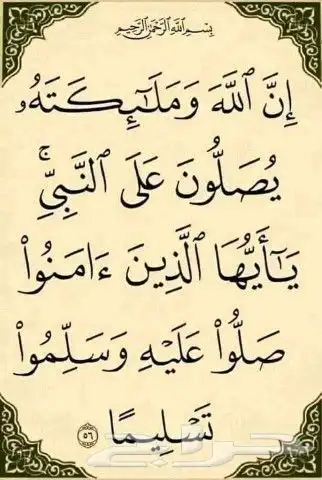 بِسْمِ اللَّهِ الرَّحْمَٰنِ الرَّحِيمِ
إِنَّ ٱللَّهَ وَمَلَـٰٓئِكَتَهُۥ
يُصَلُّونَ عَلَى ٱلنَّبِيِّۚ
يَـٰٓأَيُّهَا ٱلَّذِينَ ءَامَنُوا۟
صَلُّوا۟ عَلَيْهِ وَسَلِّمُوا۟
تَسْلِيمًا ٥٦
حراج